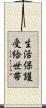 生活保護
受給世帯